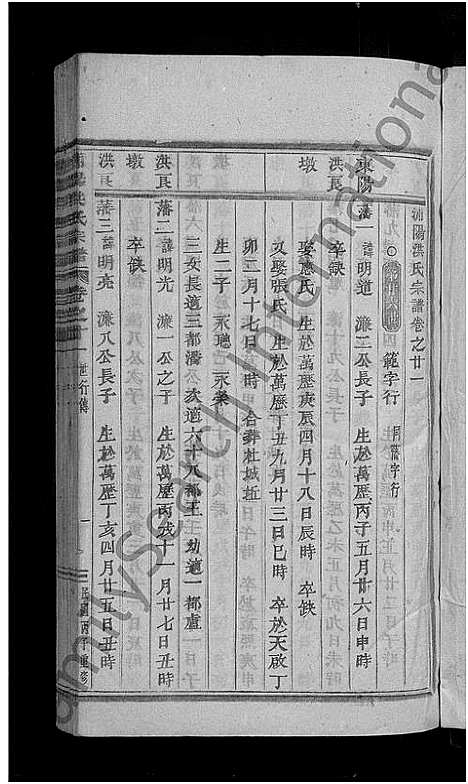 浦陽洪氏宗譜卷之廿一
範字行 同徽字行
東陽 藩一 諱明道 濂二公長子 生於萬歷丙子五月廿六日申時
洪良 卒缺
墩 娶應氏 生於萬歷庚辰四月十八日辰時 卒缺
又娶張氏 生於萬歷丁丑九月廿三日巳時 卒於天啟丁
卯二月十七日 時 合葬杜城坵
生二子 永聰 永
三女長適三都潘 次適六十八都王 幼適一都盧
洪良 藩二 諱明光 濂一公之子 生於萬歷丙戌十一月廿七日丑時
墩 卒缺
洪良 藩三 諱明亮 濂八公長子 生於萬歷丁亥四月廿五日丑時
洪氏宗譜 卷之 世行傳 一 民國丙子重修
FamilySearch International